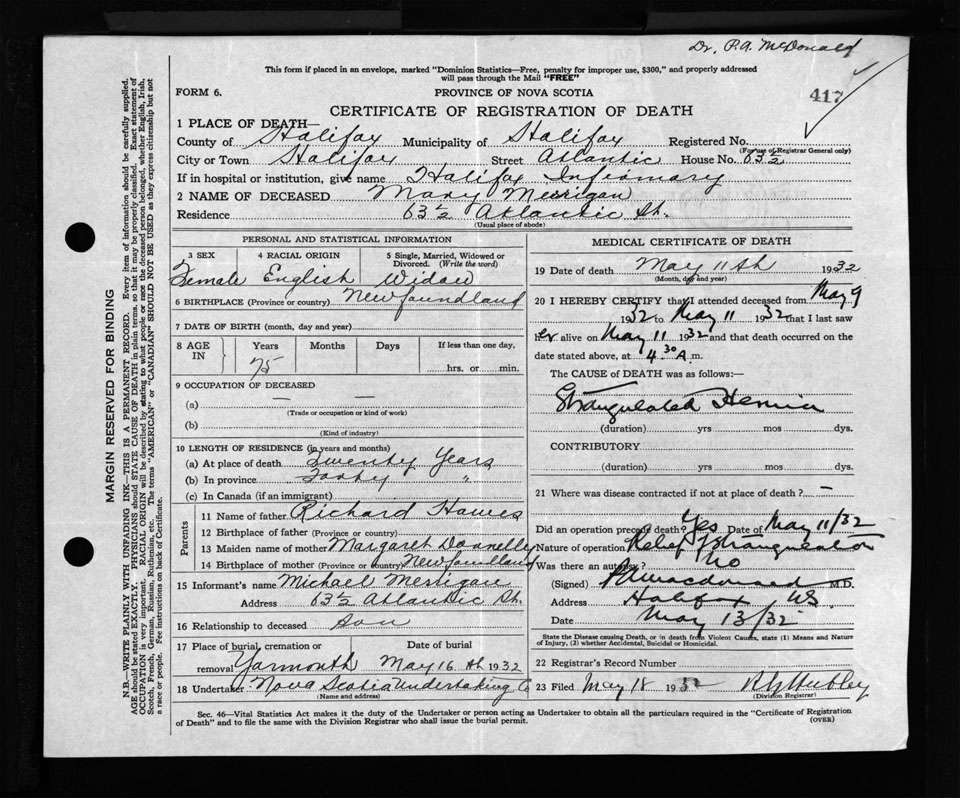 Dr. P.A. McDonald
This form if placed in an envelope, marked "Dominion Statistics—Free, penalty for improper use, $300," and properly addressed
will pass through the Mail "FREE"
FORM 6.
PROVINCE OF NOVA SCOTIA
417
CERTIFICATE OF REGISTRATION OF DEATH
1 PLACE OF DEATH—
County of Halifax Municipality of Halifax Registered No.
(For use of Registrar General only)
City or Town Halifax Street Atlantic House No. 63½
If in hospital or institution, give name Halifax Infirmary
2 NAME OF DECEASED Mary Merrigan
Residence 63½ Atlantic St.
(Usual place of abode)
PERSONAL AND STATISTICAL INFORMATION
3 SEX 4 RACIAL ORIGIN 5 Single, Married, Widowed or Divorced. (Write the word)
Female English Widow
6 BIRTHPLACE (Province or country) Newfoundland
7 DATE OF BIRTH (month, day and year)
8 AGE IN Years Months Days If less than one day,
75 hrs. or min.
9 OCCUPATION OF DECEASED
(a) — —
(Trade or occupation or kind of work)
(b)
(Kind of industry)
10 LENGTH OF RESIDENCE (in years and months)
(a) At place of death Twenty Years
(b) In province Forty "
(c) In Canada (if an immigrant)
Parents
11 Name of father Richard Hawes
12 Birthplace of father (Province or country)
13 Maiden name of mother Margaret Donnelly
14 Birthplace of mother (Province or country) Newfoundland
15 Informant's name Michael Merrigan
Address 63½ Atlantic St.
16 Relationship to deceased Son
17 Place of burial, cremation or removal Date of burial
Yarmouth May 16th 1932
18 Undertaker Nova Scotia Undertaking Co
(Name and address)
MEDICAL CERTIFICATE OF DEATH
19 Date of death May 11th 1932
(Month, day and year)
20 I HEREBY CERTIFY that I attended deceased from May 9
1932 to May 11 1932 that I last saw
her alive on May 11 1932 and that death occurred on the
date stated above, at 4.30 A.m.
The CAUSE of DEATH was as follows:—
Strangulated Hernia
(duration) yrs mos dys.
CONTRIBUTORY
(duration) yrs mos dys.
21 Where was disease contracted if not at place of death? —
Did an operation precede death? Yes Date of May 11/32
Nature of operation Relief Strangulation
Was there an autopsy? No
(Signed) P A Macdonald M.D.
Address Halifax NS.
Date May 13/32
State the Disease causing Death, or in death from Violent Causes, state (1) Means and Nature
of Injury, (2) whether Accidental, Suicidal or Homicidal.
22 Registrar's Record Number
23 Filed May 18 1932
(Division Registrar)
Sec. 46—Vital Statistics Act makes it the duty of the Undertaker or person acting as Undertaker to obtain all the particulars required in the "Certificate of Registration
of Death" and to file the same with the Division Registrar who shall issue the burial permit.
(OVER)
MARGIN RESERVED FOR BINDING
N.B.—WRITE PLAINLY WITH UNFADING INK—THIS IS A PERMANENT RECORD. Every item of information should be carefully supplied.
AGE should be stated EXACTLY. PHYSICIANS should STATE CAUSE OF DEATH in plain terms, so that it may be properly classified. Exact statement of
OCCUPATION is very important. RACIAL ORIGIN will be described by stating to what people or race the deceased person belonged, whether English, Irish,
Scotch, French, German, Russian, Ruthenian, etc. The terms "AMERICAN" or "CANADIAN" SHOULD NOT BE USED as they express citizenship but not
a race or people. Fee instructions on back of Certificate.